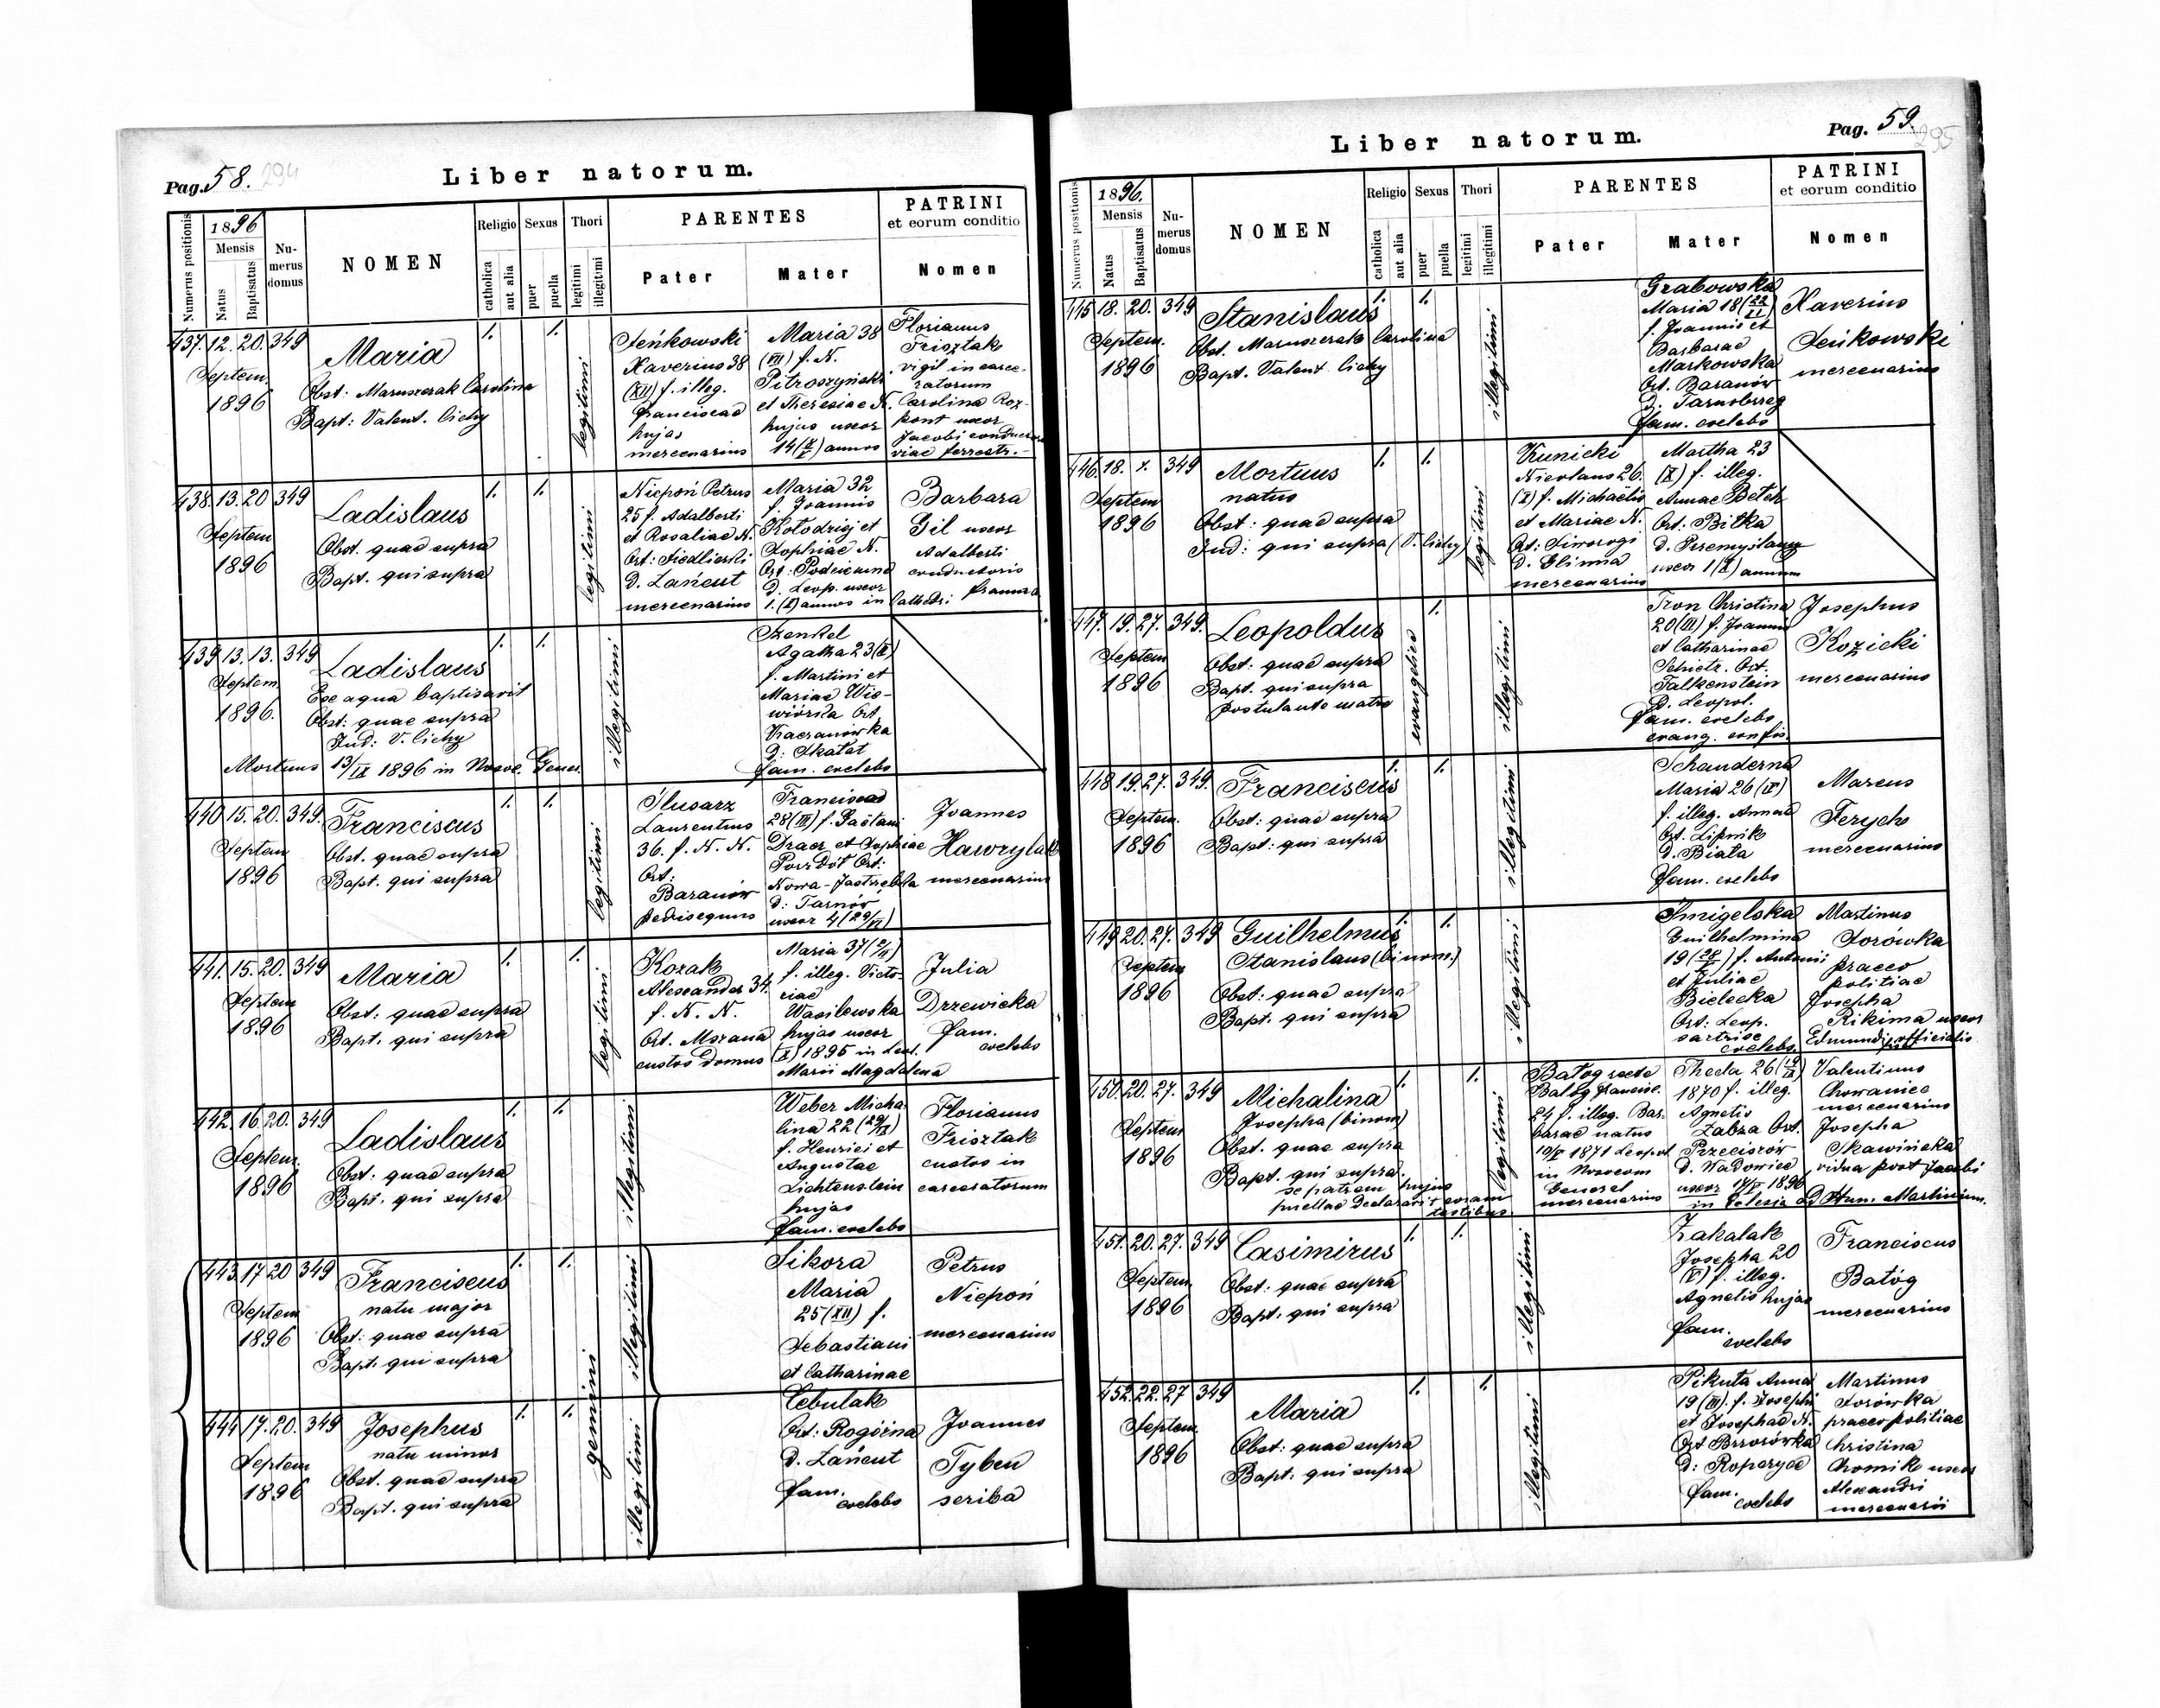 Pag. 58. 294
Liber natorum.
Numerus positionis
1896
Mensis
Natus
Baptisatus
Nu-
merus
domus
NOMEN
Religio
catholica
aut alia
Sexus
puer
puella
Thori
legitimi
illegitimi
PARENTES
Pater
Mater
PATRINI
et eorum conditio
Nomen
437. 12. 20. 349
Septem.
1896
Maria
Obst: Maruszczak Carolina
Bapt: Valent. Cichy
1. 1.
legitimi
Xaverius 38
(XII) f. illeg.
Franciscae
hujas
mercenarius
Maria 38
(VII) f. N.
et Theresiae N.
hujus uxor
annos
Florianus
Trisztak
vigil in carce-
ratorum
Carolina Roz-
kont uxor
Jacobi conductoris
viae ferrestr.
438. 13. 20 349
Septem
1896
Ladislaus
Obst. quae supra
Bapt. qui supra
1. 1.
legitimi
Niepoń Petrus
25 f. Adalberti
et Rosaliae N.
Ort:
d. Łańcut
mercenarius
Maria 32
f. Joannis
Kołodziej et
Sophiae N.
Ort:
d. Leop. uxor
1. (X) annos in Cathedr.
Barbara
Gil uxor
Adalberti
conductoris
439 13. 13. 349
Septem.
1896.
Ladislaus
Ex aqua baptisavit
Obst: quae supra
Ind: V. Cichy
Mortuus 13/IX 1896 in Nosoc. Gener.
1. 1.
illegitimi
Agatha 23
f. Martini et
Mariae Wie-
wiórka Ort.
Kaczanówka
D: Skałat
fam. coelebs
440 15. 20. 349.
Septem
1896
Franciscus
Obst. quae supra
Bapt. qui supra
1. 1.
legitimi
Ślusarz
Laurentius
36. f. N. N.
Ort:
Baranów
pedisequus
Francisca
28 (III) f. Gaëtani
et Sophiae
Ort:
Nowa-Jastrząbka
d: Tarnów
uxor
Joannes
Hawrylak
mercenarius
441. 15. 20. 349
Septem
1896
Maria
Obst: quae supra
Bapt. qui supra
1. 1.
legitimi
Kozak
Alexander 34.
f. N. N.
Ort.
custos domus
Maria 37
f. illeg. Victo-
riae
Wasilewska
hujas uxor
1895 in
Magdalena
Julia
Drzewicka
fam.
coelebs
442. 16. 20. 349
Septem.
1896
Ladislaus
Obst: quae supra
Bapt. qui supra
1. 1.
illegitimi
Weber Micha-
lina 22
f. Henrici et
Augustae
Lichtenstein
hujas
fam. coelebs
Florianus
Trisztak
custos in
carceratorum
443. 17 20 349
Septem
1896
Franciscus
natu major
Obst: quae supra
Bapt. qui supra
1. 1.
gemini
illegitimi
Sikora
Maria
25 (XII) f.
Sebastiani
et Catharinae
Petrus
Niepoń
mercenarius
444 17. 20. 349
Septem
1896
Josephus
natu minor
Obst. quae supra
Bapt. qui supra
1. 1.
illegitimi
Cebulak
Ort: Rogóżna
d. Łańcut
fam.
coelebs
Joannes
Tyben
scriba
Pag. 59. 295
Liber natorum.
Numerus positionis
1896.
Mensis
Natus
Baptisatus
Nu-
merus
domus
NOMEN
Religio
catholica
aut alia
Sexus
puer
puella
Thori
legitimi
illegitimi
PARENTES
Pater
Mater
PATRINI
et eorum conditio
Nomen
445 18. 20. 349
Septem.
1896
Stanislaus
Obst. Maruszczak Carolina
Bapt. Valent. Cichy
1. 1.
illegitimi
Grabowska
Maria 18
f. Joannis et
Barbarae
Markowska
Ort. Baranów
D. Tarnobrzeg
fam. coelebs
Xaverius
mercenarius
446. 18. 349
Septem
1896
Mortuus
natus
Obst: quae supra
Ind: qui supra (V. Cichy)
1. 1.
legitimi
Kunicki
Nicolaus 26.
(X) f. Michaëlis
et Mariae N.
Ort:
d. Glinna
mercenarius
Martha 23
(X) f. illeg.
Annae Betek
Ort: Bitka
d. Przemyślany
uxor 1 (X) annum
447. 19. 27. 349.
Septem
1896
Leopoldus
Obst: quae supra
Bapt. qui supra
postulante matre
evangelica
1.
illegitimi
Tron Christina
20 (III) f. Joannis
et Catharinae
Ort.
Falkenstein
D. Leopol.
fam. coelebs
evang. confes.
Josephus
Kozicki
mercenarius
448 19. 27. 349.
Septem.
1896
Franciscus
Obst: quae supra
Bapt: qui supra
1. 1.
illegitimi
Schanderna
Maria 26
f. illeg. Annae
Ort. Lipnik
d. Biała
fam. coelebs
Marcus
Ferych
mercenarius
449 20. 27. 349
Septem
1896
Guilhelmus
Stanislaus (binom.)
Obst: quae supra
Bapt. qui supra
1. 1.
illegitimi
Śmigelska
Guilhelmina
19 f. Antonii
et Juliae
Bielecka
Ort: Leop.
sartrix
coelebs.
Martinus
Zorówka
praeco
politiae
Josepha
Rikima uxor
Edmundi officialis
450. 20. 27. 349
Septem
1896
Michalina
Josepha (binom)
Obst. quae supra
Bapt. qui supra.
se patrem hujus
puellae declaravit coram
testibus
1. 1.
legitimi
Batog recte
24 f. illeg. Bar-
barae natus
1871 Leopol
in Nosocom
General
mercenarius
Thecla 26
1870 f. illeg.
Agnetis
Zabża Ort.
Przeciszów
d. Wadowice
uxor 1896
in Eclesia ad Hun. Martinium.
Valentinus
Chowaniec
mercenarius
Josepha
Skawińska
vidua post Jacobi
451. 20. 27. 349
Septem.
1896
Casimirus
Obst: quae supra
Bapt: qui supra
1. 1.
illegitimi
Zakalak
Josepha 20
(V) f. illeg.
Agnetis hujas
fam.
coelebs
Franciscus
Batóg
mercenarius
452. 22. 27 349
Septem.
1896
Maria
Obst: quae supra
Bapt: qui supra
1. 1.
illegitimi
Pikuta Anna
19 (III). f. Josephi
et Josephae N.
Ort Brzozówka
D: Ropczyce
fam.
coelebs
Martinus
Zorówka
praeco politiae
Christina
Chomik uxor
Alexandri
mercenarii